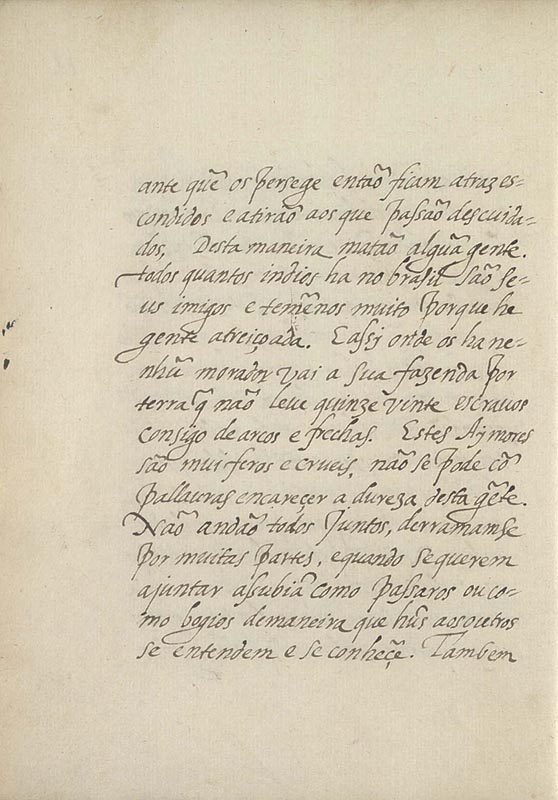 ante quẽ os persege entaõ ficam atraz es-
condidos e atiraõ aos que passaõ descuida-
dos. Desta maneira mataõ alguã gente.
todos quantos indios ha no brasil saõ se-
us imigos e temẽnos muito porque he
gente atreiçoada. E assi onde os ha ne-
nhũ morador vai a sua fazenda por
terra q̃ naõ leve quinze vinte escravos
consigo de arcos e frechas. Estes Aymores
saõ mui feros e crueis, naõ se pode cõ
pallauras encareçer a dureza desta gẽte.
Naõ andaõ todos juntos, derramamse
por muitas partes, e quando se querem
ajuntar assubiã como passaros ou co-
mo bogios demaneira que hũs aos outros
se entendem e se conheçẽ. Tambem